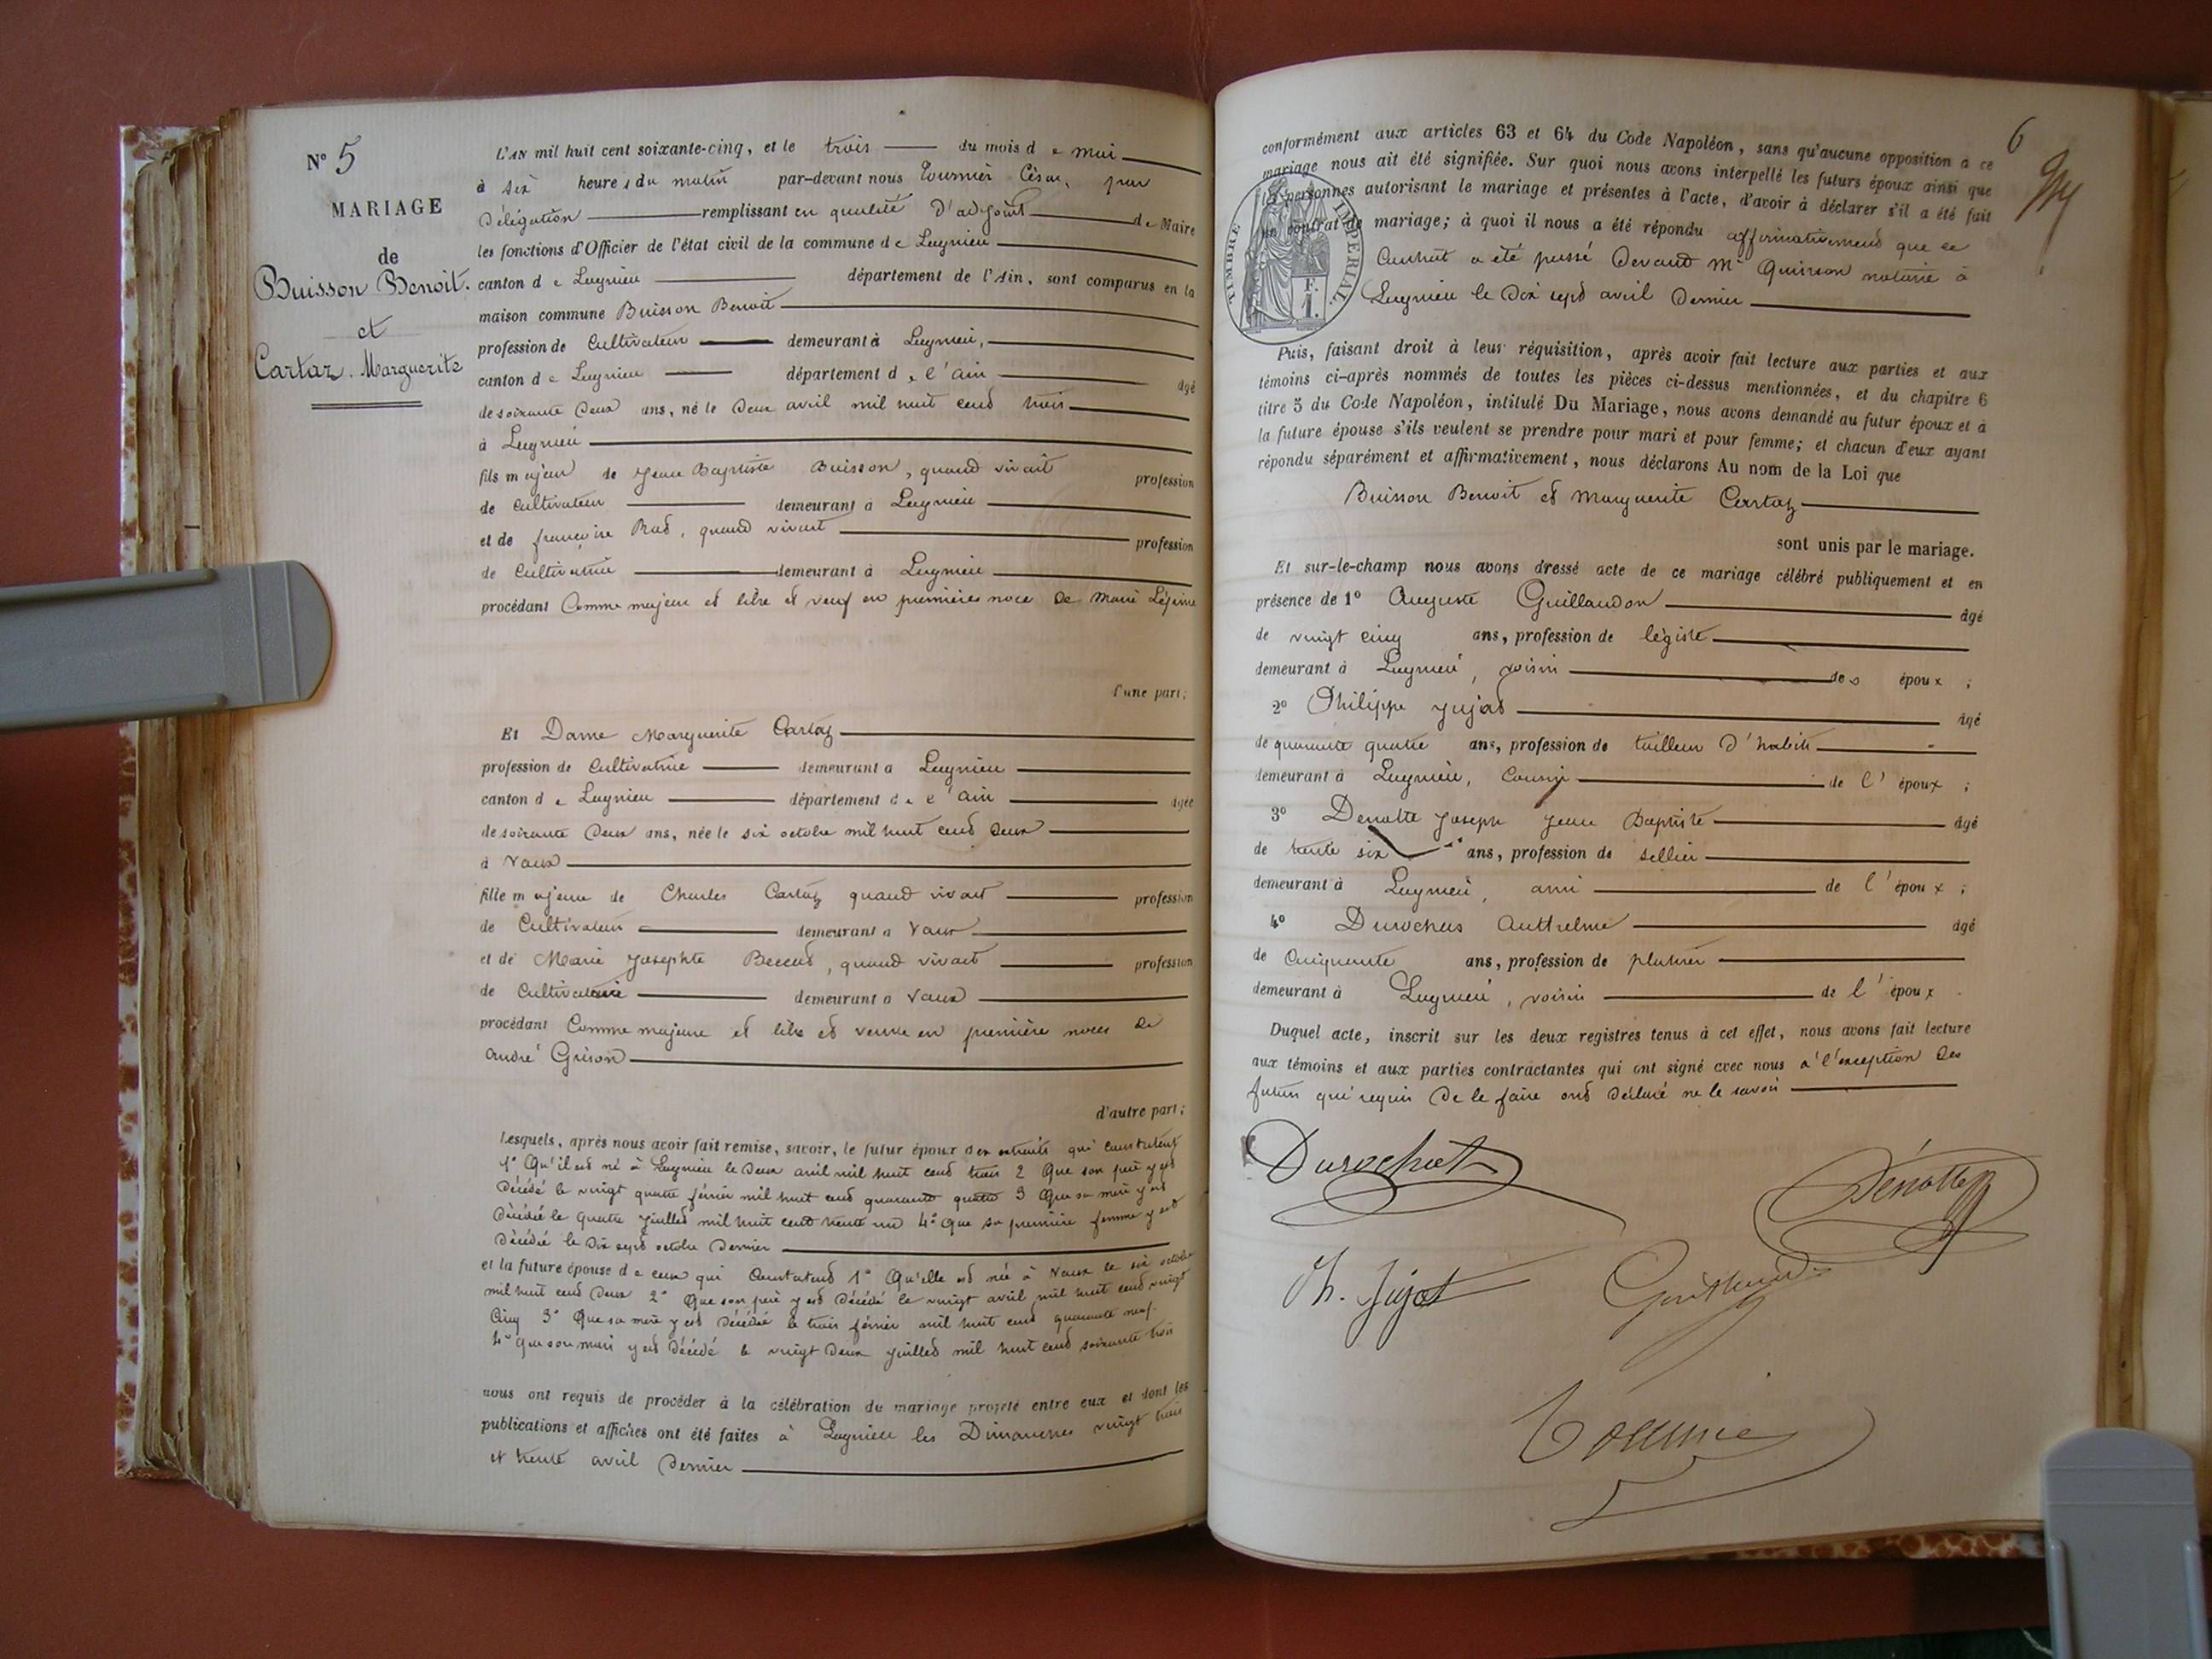 N° 5
MARIAGE
de
Buisson Benoit.
et
Cartaz. Marguerite
L'AN mil huit cent soixante-cinq, et le trois du mois de mai
à six heures du matin par-devant nous Tournier César, par
Délégation remplissant en qualité d'adjoint de Maire
les fonctions d'Officier de l'état civil de la commune de Lagnieu
canton de Lagnieu département de l'Ain, sont comparus en la
maison commune Buisson Benoit
profession de Cultivateur demeurant à Lagnieu,
canton de Lagnieu département de l'Ain âgé
de soixante Deux ans, né le Deux avril mil huit cend trois
à Lagnieu
fils majeur de Jean Baptiste Buisson, quand vivait profession
de Cultivateur demeurant à Lagnieu
et de françoise, quand vivait profession
de Cultivatrice demeurant à Lagnieu
procédant Comme majeur et libre et veuf en premières noce De Marie
d'une part;
Et Dame Marguerite Cartaz
profession de Cultivatrice demeurant à Lagnieu
canton de Lagnieu département de l'Ain âgée
de soixante Deux ans, née le six octobre mil huit cend Deux
à Vaux
fille majeure de Charles Cartaz quand vivait profession
de Cultivateur demeurant à Vaux
et de Marie Josephte, quand vivait profession
de Cultivatrice demeurant à Vaux
procédant Comme majeure et libre et veuve en première noces De
André Grison
d'autre part;
Lesquels, après nous avoir fait remise, savoir, le futur époux des extraits qui constatent
1° Qu'il est né à Lagnieu le Deux avril mil huit cend trois 2 Que son père y est
Décédé le vingt quatre février mil huit cend quarante quatre 3 Que sa mère y est
Décédée le quatre juilled mil huit cent trente un 4° Que sa première femme y est
Décédée le Dix sept octobre Dernier
et la future épouse de ceux qui Constatend 1° Qu'elle est née à Vaux le six octobre
mil huit cend Deux 2° Que son père y est Décédé le vingt avril mil huit cend vingt
Cinq 3° Que sa mère y est Décédée le trois février mil huit cend quarante neuf.
4° que son mari y est Décédé le vingt Deux juilled mil huit cend soixante trois
nous ont requis de procéder à la célébration du mariage projeté entre eux et dont les
publications et affiches ont été faites à Lagnieu les Dimanches vingt trois
et trente avril Dernier
6
conformément aux articles 63 et 64 du Code Napoléon, sans qu'aucune opposition à ce
mariage nous ait été signifiée. Sur quoi nous avons interpellé les futurs époux ainsi que
les personnes autorisant le mariage et présentes à l'acte, d'avoir à déclarer s'il a été fait
un contrat de mariage; à quoi il nous a été répondu affirmativement que ce
Contrat a été passé Devand Me Quinson notaire à
Lagnieu le Dix sept avril Dernier
TIMBRE IMPERIAL.
F.
1.
Puis, faisant droit à leur réquisition, après avoir fait lecture aux parties et aux
témoins ci-après nommés de toutes les pièces ci-dessus mentionnées, et du chapitre 6
titre 5 du Code Napoléon, intitulé Du Mariage, nous avons demandé au futur époux et à
la future épouse s'ils veulent se prendre pour mari et pour femme; et chacun d'eux ayant
répondu séparément et affirmativement, nous déclarons Au nom de la Loi que
Buisson Benoit et Marguerite Cartaz
sont unis par le mariage.
Et sur-le-champ nous avons dressé acte de ce mariage célébré publiquement et en
présence de 1° Auguste Guillaudon âgé
de vingt cinq ans, profession de légiste
demeurant à Lagnieu, voisin des époux;
2° Philippe Jujad âgé
de quarante quatre ans, profession de tailleur D'habits
demeurant à Lagnieu, Cousin de l'époux;
3° Denotte Joseph Jean Baptiste âgé
de trente six ans, profession de sellier
demeurant à Lagnieu, ami de l'époux;
4° Durochas Anthelme âgé
de Cinquante ans, profession de platrier
demeurant à Lagnieu, voisin de l'époux.
Duquel acte, inscrit sur les deux registres tenus à cet effet, nous avons fait lecture
aux témoins et aux parties contractantes qui ont signé avec nous à l'exception Des
futurs qui requis De le faire ond Déclaré ne le savoir
Durochat
Dénotte
Ph. Jujat